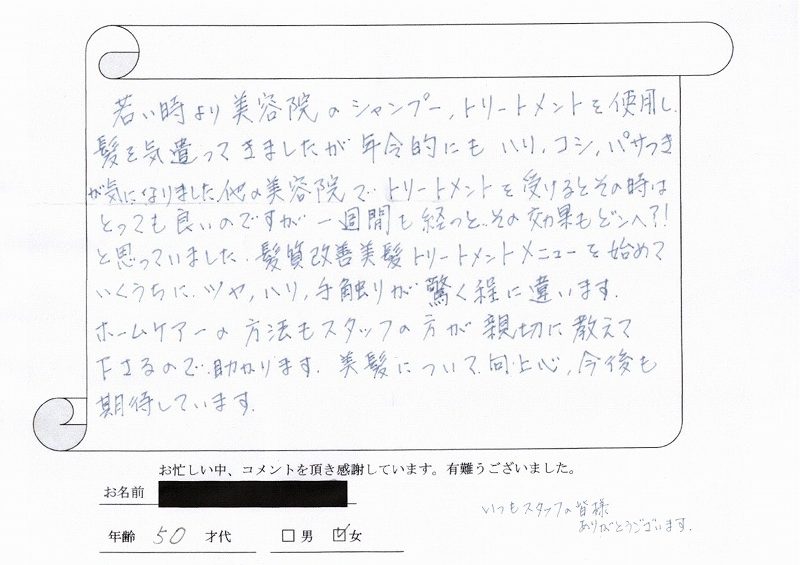 若い時より美容院のシャンプー,トリートメントを使用し
髪を気遣ってきましたが年令的にもハリ,コシ,パサつき
が気になりました.他の美容院でトリートメントを受けるとその時は
とっても良いのですが一週間も経つと.その効果もどこへ?!
と思っていました.髪質改善美髪トリートメントメニューを始めて
いくうちに.ツヤ,ハリ,手触りが驚く程に違います.
ホームケアーの方法もスタッフの方が親切に教えて
下さるので.助かります.美髪について.向上心,今後も
期待しています.
お忙しい中、コメントを頂き感謝しています。有難うございました。
お名前
年齢 50 才代 □男 ☑女
いつもスタッフの皆様
ありがとうございます.